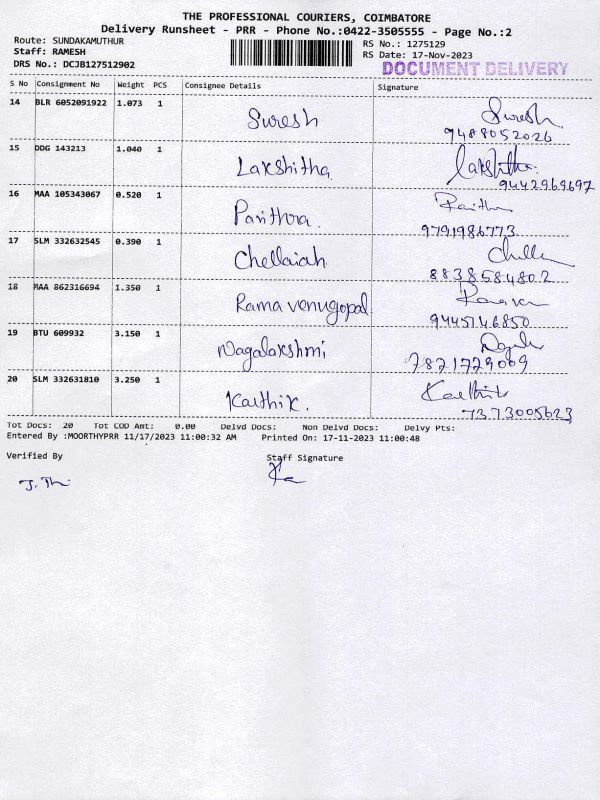 THE PROFESSIONAL COURIERS, COIMBATORE
Delivery Runsheet - PRR - Phone No.:0422-3505555 - Page No.:2
Route: SUNDAKAMUTHUR
RS No.: 1275129
Staff: RAMESH
RS Date: 17-Nov-2023
DRS No.: DCJB127512902
DOCUMENT DELIVERY
S No Consignment No Weight PCS Consignee Details Signature
14 BLR 6052091922 1.073 1 Suresh Suresh
9488052026
15 DDG 143213 1.040 1 Lakshitha Lakshitha
9442969697
16 MAA 105343067 0.520 1 Pavithra
9791986773
17 SLM 332632545 0.390 1 Chellaiah
8838584802
18 MAA 862316694 1.350 1 Rama venugopal
9445146850
19 BTU 609932 3.150 1 Nagalakshmi
7821729009
20 SLM 332631810 3.250 1 Karthik. Karthik
7373005623
Tot Docs: 20 Tot COD Amt: 0.00 Delvd Docs: Non Delvd Docs: Delvy Pts:
Entered By :MOORTHYPRR 11/17/2023 11:00:32 AM Printed On: 17-11-2023 11:00:48
Verified By Staff Signature